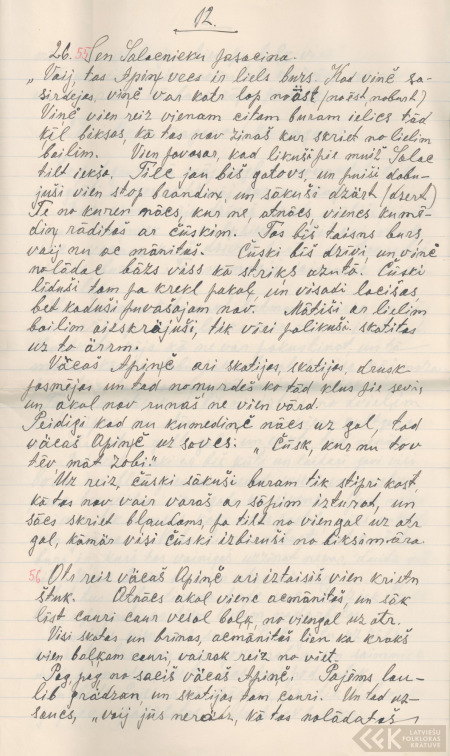 12.
26. 55 Sen Salacnieku pasacina.
„Vaij, tas Apiņx vecs ir liels burs. Kad viņč sa-
sirdejas, viņč var katr lop noäst (noēst, noburt)
Viņč vien reiz vienam citam buram ielics tād
ķīl biksas, ka tas nav zinaš kur skriet no lielim
bailim. Vien pavasar, kad likuši pie muiž Salac
tilt iekša. Tilc jau biš gatavs, un puiši dabu-
juši vien stop brandiņ, un sākuši dzärt (dzert)
Te no kuren nācs, kur ne, atnācs, viencs kumē-
diņ rādītas ar čūskim. Tas biš taisns burs,
vaij nu ac mānitas. Čuski biš dzivi, un viņč
nolādac bāzs viss kā striks azutā. Čuski
līduši tam pa krekl pakaļ, un visadi locišas
bet kaduši puvašajam nav. Mātiši ar lielim
bailim aizskrajuši, tik viri palikuši skatitas
uz to ārrm.
Väcaš Apiņč ari skatijas, skatijas, drusk
pasmejas un tad nomurdēš ko tād klus pie sevis
un akal nav runaš ne vien vārd.
Peidīgi kad nu kumediņč nācs uz gal, tad
väcaš Apiņč uz saucs: „Čūsk, kur nu tov
tēv, māt zobi."
Uz reiz, čuski sākuši buram tik stipri kost,
ka tas nav vair varaš ar sāpim izturat, un
sācs skriet blaudams, pa tilt no viengal uz otr
gal, kāmār visi čuski izbiruši no biksim āra.
56 Otr reiz väcaš Apiņč ari iztaisiš vien kristn
štuk. Atnācs akal vienc acmānitaš, un sāk
līst cauri caur vesal baļķ, no viengal uz otr.
Visi skatas un brinas, acmānitaš lien ka krakš
vien baļkam cauri, vairak reiz no viet.
Pag, pag no saciš väcaš Apiņč. Pajēms lau-
lib grädzan, un skatijas tam cauri. Un tad uz-
saucs, „vaij jūs neradz, ka tas nolādataš
LATVIEŠU
FOLKLORAS
KRĀTUVE